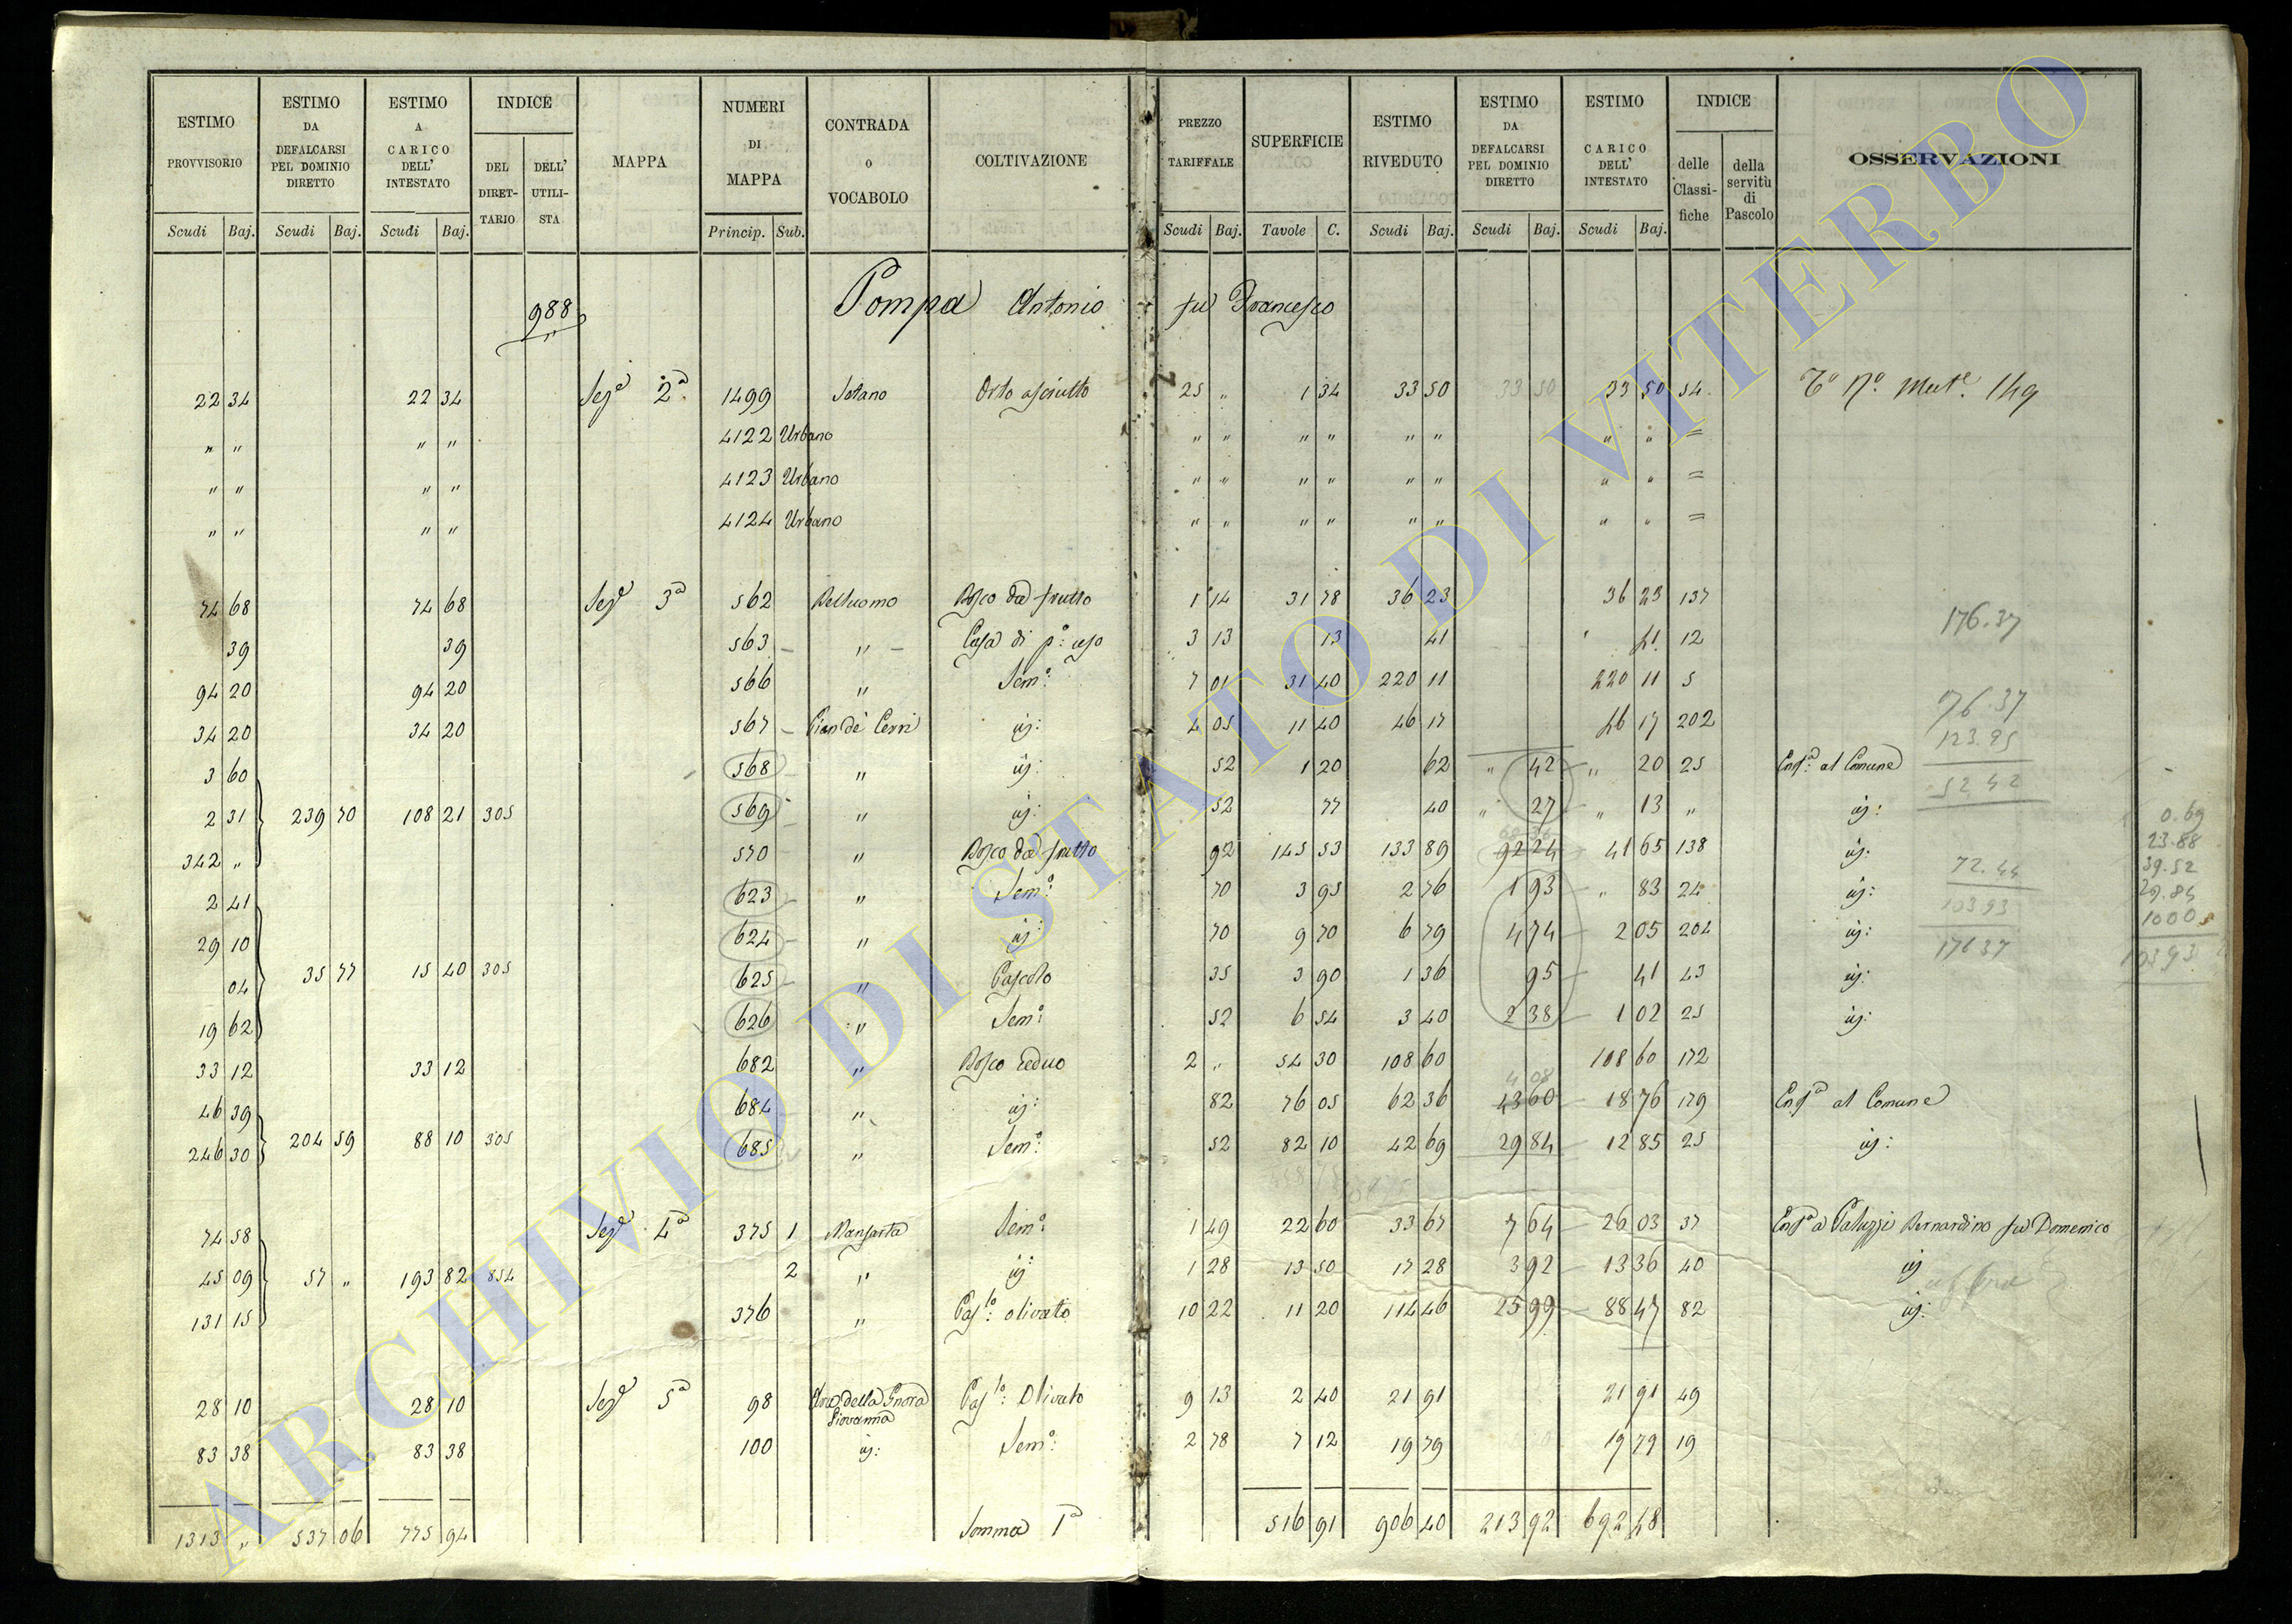 ESTIMO PROVVISORIO | ESTIMO DA DEFALCARSI PEL DOMINIO DIRETTO | ESTIMO A CARICO DELL' INTESTATO | INDICE | MAPPA | NUMERI DI MAPPA | CONTRADA O VOCABOLO | COLTIVAZIONE | PREZZO TARIFFALE | SUPERFICIE | ESTIMO RIVEDUTO | ESTIMO DA DEFALCARSI PEL DOMINIO DIRETTO | ESTIMO CARICO DELL' INTESTATO | INDICE | OSSERVAZIONI
DEL DIRETTARIO | DELL' UTILISTA | delle Classifiche | della servitù di Pascolo
Scudi Baj. | Scudi Baj. | Scudi Baj. | Princip. Sub. | Scudi Baj. | Tavole C. | Scudi Baj. | Scudi Baj. | Scudi Baj.
988 Pompa Antonio fu Francesco
22 34 | 22 34 | Sez.e 2a | 1499 | Sotano | Orto asciutto | 25 " | 1 34 | 33 50 | 33 50 | 33 50 | 54 | 149
" " | " " | 4122 Urbano | " " | " " | " " | " " | =
" " | " " | 4123 Urbano | " " | " " | " " | " " | =
" " | " " | 4124 Urbano | " " | " " | " " | " " | =
74 68 | 74 68 | Sez.e 3a | 562 | Belluomo | Bosco da frutto | 1 14 | 31 78 | 36 23 | 36 23 | 137 | 176.37
39 | 39 | 563 | " | Casa di po: uso | 3 13 | 13 | 41 | 41 | 12
94 20 | 94 20 | 566 | " | Semo: | 7 01 | 31 40 | 220 11 | 220 11 | 5
34 20 | 34 20 | 567 | Pian de' Cerri | ij: | 4 05 | 11 40 | 46 17 | 46 17 | 202 | 176.37
123.95
3 60 | 568 | " | ij: | 52 | 1 20 | 62 | " 42 | " 20 | 25 | Enfa: al Comune | 52 42
2 31 | 239 70 | 108 21 | 305 | 569 | " | ij: | 52 | 77 | 40 | " 27 | " 13 | " | ij: | 0.69
342 " | 570 | " | Bosco da frutto | 92 | 145 53 | 133 89 | 92 24 | 41 65 | 138 | ij: | 72.44 | 23.88
39.52
2 41 | 623 | " | Semo: | 70 | 3 95 | 2 76 | 1 93 | " 83 | 24 | ij: | 103 93 | 29.84
29 10 | 624 | " | ij: | 70 | 9 70 | 6 79 | 4 74 | 2 05 | 204 | ij: | 176 37 | 1000
04 | 35 77 | 15 40 | 305 | 625 | " | Pascolo | 35 | 3 90 | 1 36 | 95 | 41 | 43 | ij: | 103 93
19 62 | 626 | " | Semo: | 52 | 6 54 | 3 40 | 2 38 | 1 02 | 25 | ij:
33 12 | 33 12 | 682 | " | Bosco ceduo | 2 " | 54 30 | 108 60 | 108 60 | 172
4 08
46 39 | 684 | " | ij: | 82 | 76 05 | 62 36 | 43 60 | 18 76 | 179 | Enfa al Comune
246 30 | 204 59 | 88 10 | 305 | 685 | " | Semo: | 52 | 82 10 | 42 69 | 29 84 | 12 85 | 25 | ij:
74 58 | Sez.e 4a | 375 1 | Manfarta | Semo: | 1 49 | 22 60 | 33 67 | 7 64 | 26 03 | 37 | Enfa a Paluzzi Bernardino fu Domenico
45 09 | 57 " | 193 82 | 854 | 2 | " | ij: | 1 28 | 13 50 | 17 28 | 3 92 | 13 36 | 40 | ij
131 15 | 376 | " | Paslo: olivato | 10 22 | 11 20 | 114 46 | 25 99 | 88 47 | 82 | ij:
28 10 | 28 10 | Sez.e 5a | 98 | Ara della Gnora Giovanna | Paslo: Olivato | 9 13 | 2 40 | 21 91 | 21 91 | 49
83 38 | 83 38 | 100 | ij: | Semo: | 2 78 | 7 12 | 19 79 | 19 79 | 19
1313 " | 537 06 | 775 94 | Somma 1a | 516 91 | 906 40 | 213 92 | 692 48
ARCHIVIO DI STATO DI VITERBO